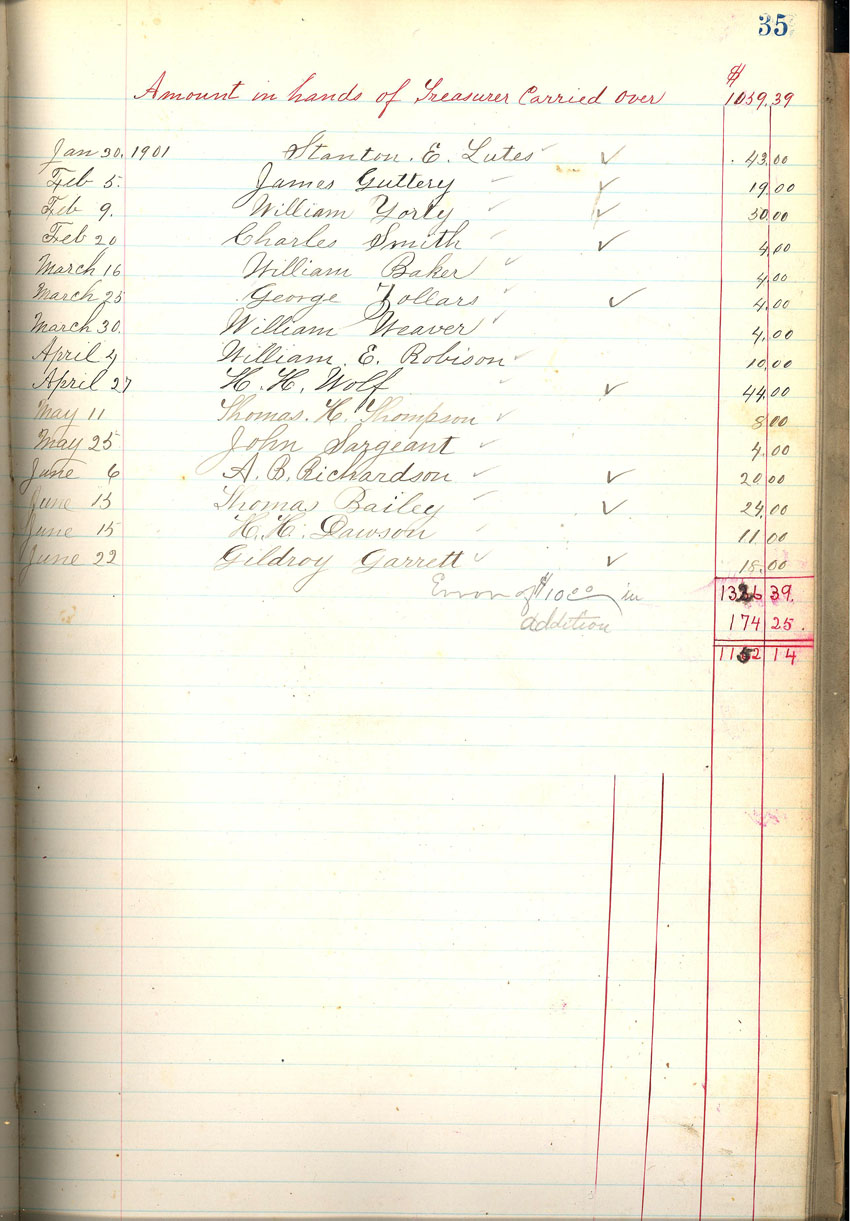 35
Amount in hands of Treasurer Carried over $ 1059.39
Jan 30. 1901 Stanton. E. Lutes ✓ 43.00
Feb 5. James Guttery ✓ 19.00
Feb 9. William Yorty ✓ 50.00
Feb 20 Charles Smith ✓ 4.00
March 16 William Baker 4.00
March 25 George Follars ✓ 4.00
March 30. William Weaver 4.00
April 4 William. E. Robison 10.00
April 27 H. H. Wolf ✓ 44.00
May 11 Thomas. H. Thompson 8.00
May 25 John Sargeant 4.00
June 6 A. B. Richardson ✓ 20.00
June 15 Thomas Bailey ✓ 24.00
June 15 H. H. Dawson 11.00
June 22 Gildroy Garrett ✓ 18.00
Error of $10.00 in 1326 39.
addition 174 25.
1152 14